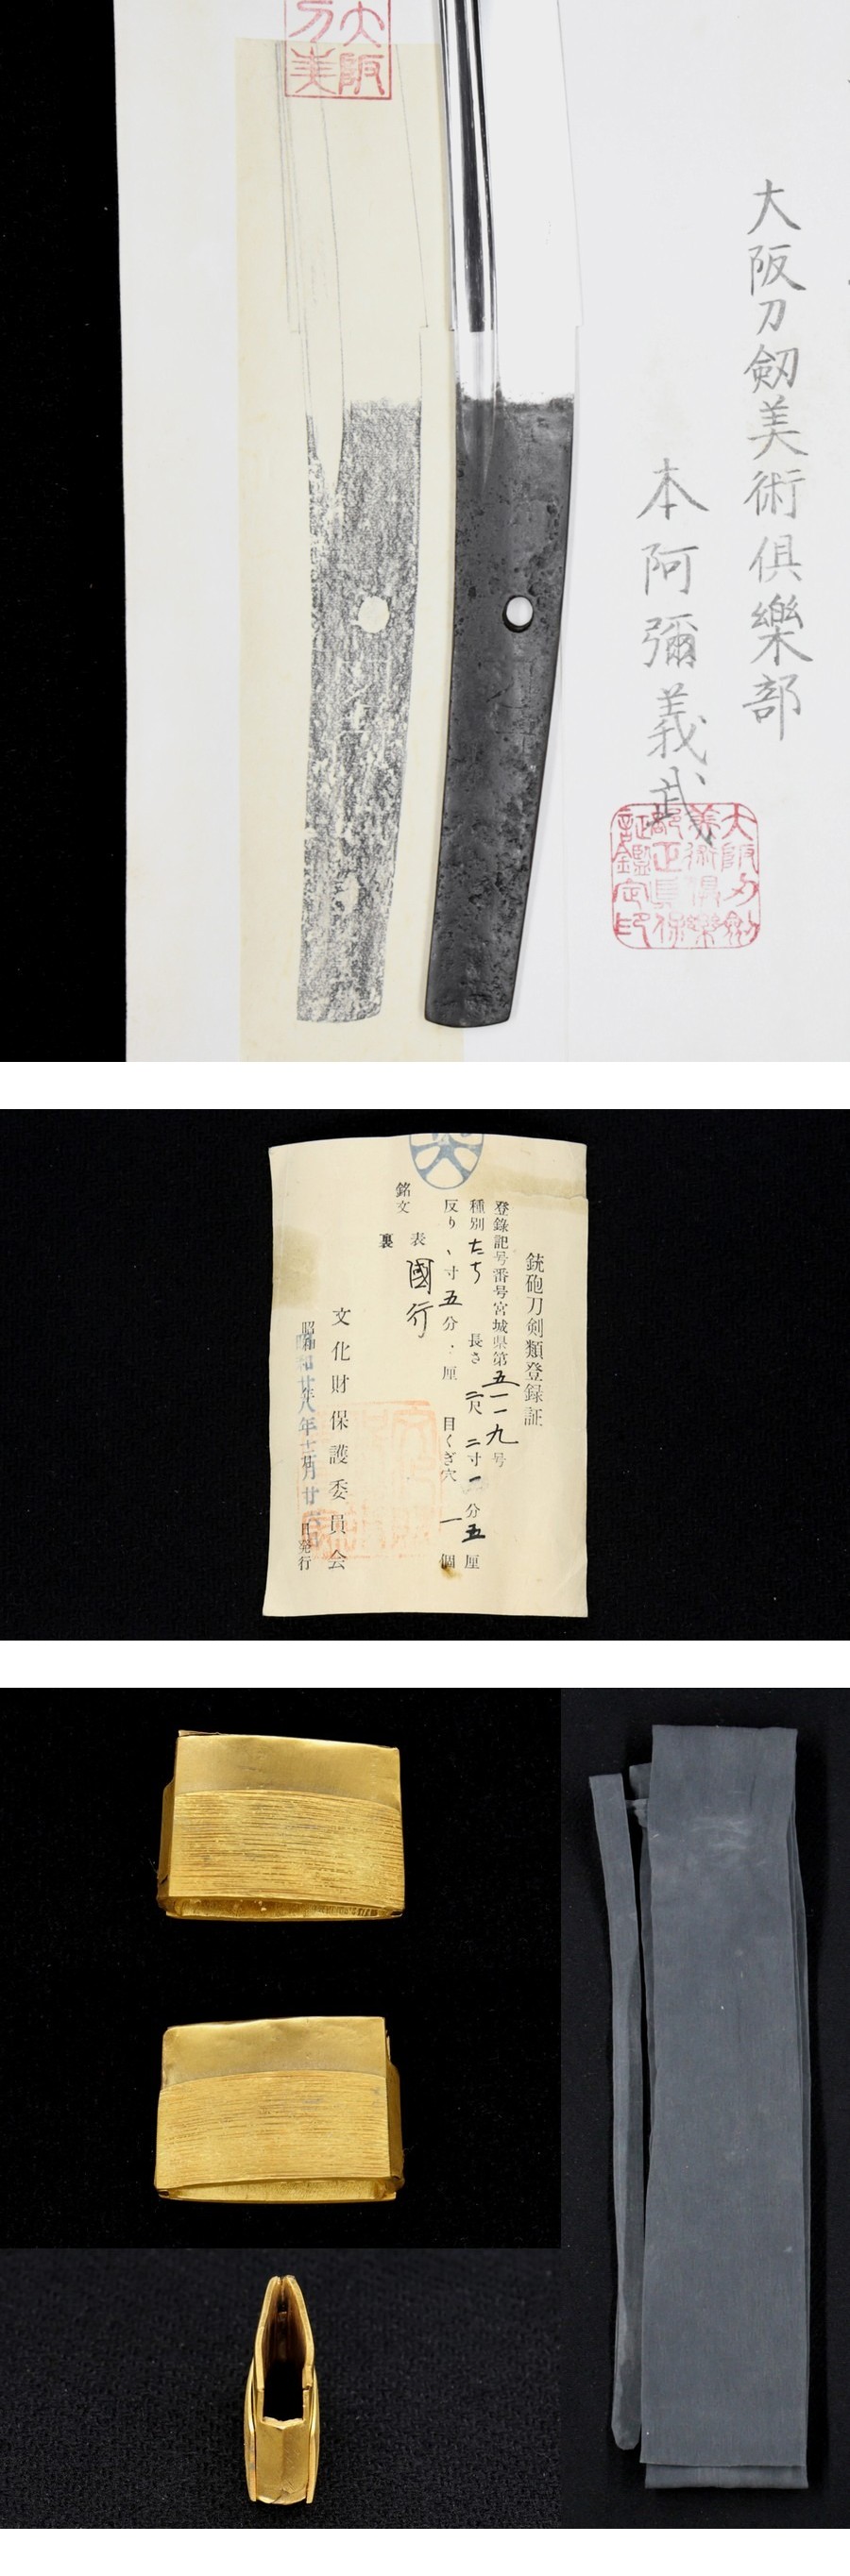 大阪
刀美
大阪刀剱美術倶樂部
本阿彌義武
大阪刀劍
美術倶樂
部正真保
証鑑定印
銃砲刀剣類登録証
登録記号番号宮城県第五一一九号
種別 たち 長さ 二尺二寸一分五厘
反り 、寸五分.厘 目くぎ穴 一個
銘文 表 國行
裏
文化財保護委員会
昭和廿八年十二月廿六日発行